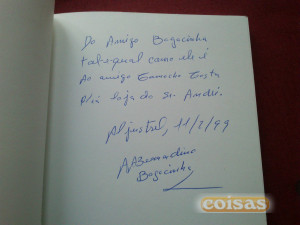 Do Amigo Bagacinha
tal e qual como ele é
Ao amigo Gamacho Costa
P'la loja do Sr. André.
Aljustrel, 11/2/99
ABernardino
Bagacinha
coisas